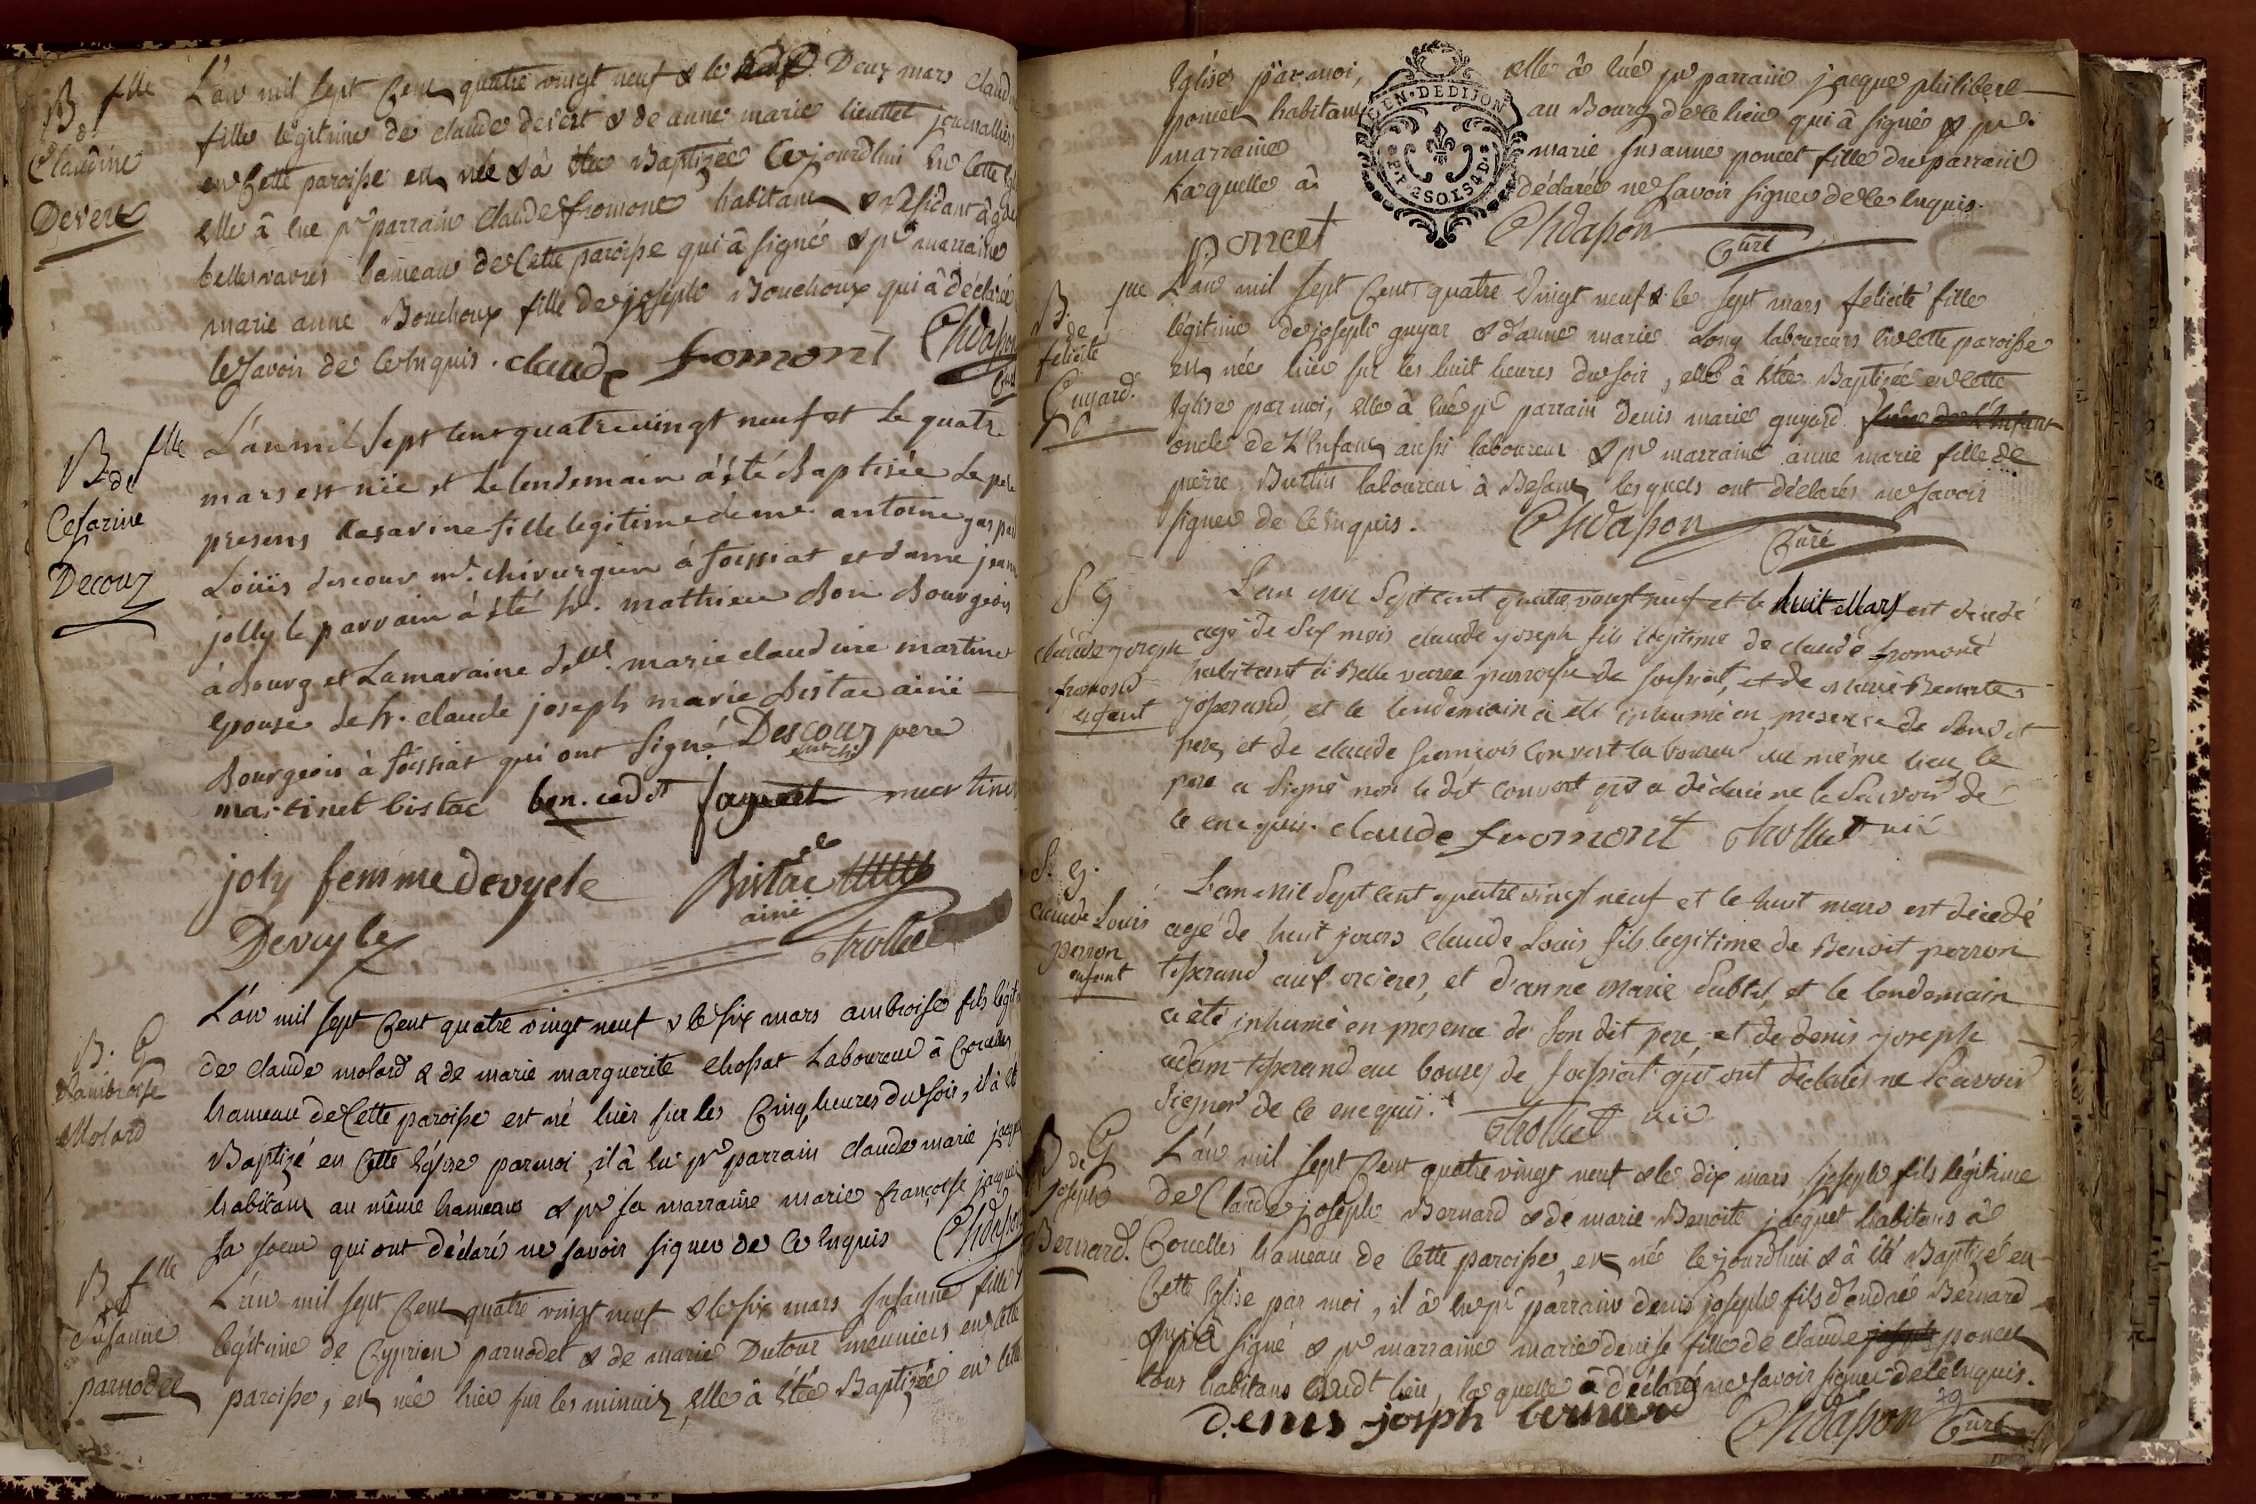 B. flle
de
Claudine
Devert
L'an mil sept Cent quatre vingt neuf & le Deux mars Claudine
fille légitime de claude devert & de anne marie lieuttet journalliers
en Cette paroisse est née & à été Baptizée Cejourdhui en Cette
elle â eue pr parrain Claude fromont habitant & résidant à
bellesvavres hameau de Cette paroisse qui â signé & pr marraine
marie anne Bouchoux fille de joseph Bouchoux qui â déclaré
le savoir de ce Enquis. claude fromont Chdasson
Curé
B flle
de
Cesarine
Decouz
L'an mil sept cent quatre vingt neuf et le quatre
mars est née et le lendemain à été Baptisée le pere
present Casarine fille legitime de mr. antoine gaspar
Loüis descour md. chirurgien à foissiat et dame jeanne
jolly le parrain à été sr. mathieu Bon Bourgeois
à Bourg et La maraine dlle. marie claudine martinet
epouse de sr. claude joseph marie Bistac ainé
Bourgeois à foissiat qui ont signé. Descouz pere
martinet bistac martinet
joly femme devyele Bistac
ainé
Devuyle trollier
B. G
d'ambroise
Molard
L'an mil sept Cent quatre vingt neuf & le six mars ambroise fils légit
de claude molard & de marie marguerite chossat Laboureur à Corcelles
hameau de Cette paroisse est né hier sur les Cinq heures du soir, il à été
Baptizé en Cette Eglise par moi, il à eu pr parrain claude marie jacquet
habitant au même hameau & pr sa marraine marie françoise jacquet
sa soeur qui ont déclaré ne savoir signer de ce Enquis Chdasson
B flle
de
Susanne
parnodet
L'an mil sept Cent quatre vingt neuf & le six mars susanne fille
légitime de Cyprien parnodet & de marie Dutour meuniers en Cette
paroisse, est née hier sur les minuit, elle â été Baptizée en Cette
Eglise par moi, elle â eue pr parrain jacque philibert
poncet habitant au Bourg de ce lieu qui â signé & pr
marraine marie susanne poncet fille du parrain
Laquelle â déclarée ne savoir signer de ce Enquis.
GEN. DE DIJON
p. poncet Chdasson Curé
B. flle
de
felicité
Guyard.
L'an mil sept Cent quatre vingt neuf & le sept mars felicité fille
légitime de joseph guyar & d'anne marie long laboureurs en Cette paroisse
est née hier sur les huit heures du soir, elle â été Baptizée en Cette
Eglise par moi, elle â eue pr parrain denis marie guyard frere de l'Enfant
oncle de L'Enfant aussi laboureur & pr marraine anne marie fille de
pierre Buttin laboureur à Besant lesquels ont déclarés ne savoir
signer de ce Enquis. Chdasson Curé
S. G
claude joseph
fromond
enfant
L'an mil Sept cent quatre vingt neuf et le huit Mars est decedé
agé de six mois claude joseph fils legitime de claude fromont
habitant à Belle vavre parroisse de foissiat, et de marie Benoite
josserand, et le lendemain a été inhumé en presence de sondit
pere, et de claude françois convert laboureur au même lieu, le
pere a signé non le dit convert qui a déclaré ne le sçavoir de
ce enquis. claude fromont trollier vic
S. G.
claude Louis
perron
enfant
L'an mil Sept cent quatre vingt neuf et le huit mars est décedé
agé de huit jours claude Louis fils legitime de Benoit perron
tisserand aux orcieres, et d'anne marie Subtil, et le lendemain
a été inhumé en presence de son dit pere, et de denis joseph
adam tisserand au bourg de foissiat qui ont déclarés ne sçavoir
signer de ce enequis. trollier vic
B G
de
joseph
Bernard.
L'an mil sept Cent quatre vingt neuf & le dix mars joseph fils légitime
de Claude joseph Bernard & de marie Benoite jacquet habitans à
Corcelles hameau de Cette paroisse, est né Cejourdhui & â été Baptizé en
Cette Eglise par moi, il â eu pr parrain denis joseph fils d'andré Bernard
qui â signé & pr marraine marie denise fille de claude joseph poncet
tous habitans audt lieu, laquelle â déclaré ne savoir signer de ce Enquis.
denis joseph bernard Chdasson Curé